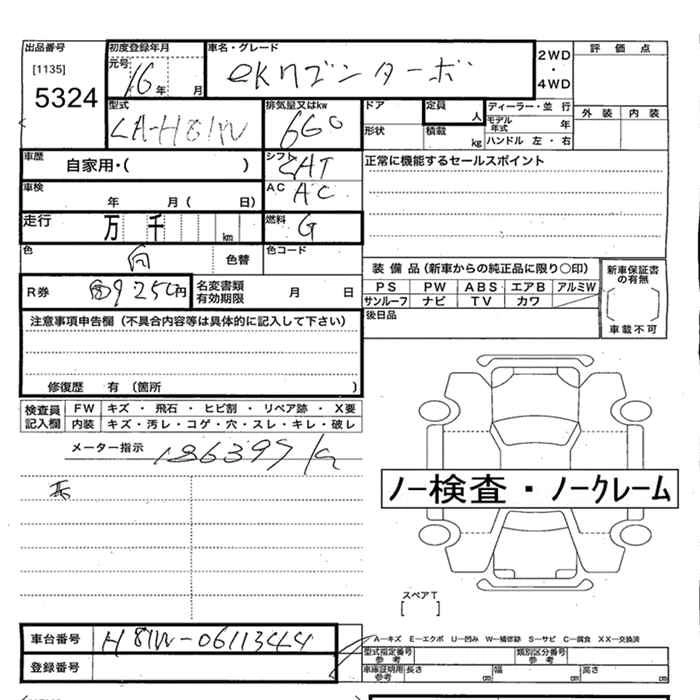 出品番号 初度登録年月 車名・グレード 2WD・4WD 評価点
[1135] 元号 16年 月 eKワゴンターボ
5324
型式 排気量又はkw ドア 定員 人 ディーラー・並行 外装 内装
LA-H81W 660 形状 積載 kg モデル年式 年
ハンドル 左・右
車歴 自家用・( ) シフト 正常に機能するセールスポイント
車検 年 月( 日) AC AC
走行 万 千 km 燃料 G
色 色替 色コード
装備品(新車からの純正品に限り○印) 新車保証書の有無
R券 9250円 名変書類有効期限 月 日 PS PW ABS エアB アルミW
サンルーフ ナビ TV カワ
車載不可
注意事項申告欄(不具合内容等は具体的に記入して下さい) 後日品
修復歴 有(箇所 )
検査員記入欄 FW キズ・飛石・ヒビ割・リペア跡・X要
内装 キズ・汚レ・コゲ・穴・スレ・キレ・破レ
メーター指示 186397
ノー検査・ノークレーム
スペアT
[ ]
車台番号 H81W-0611344
A―キズ E―エクボ U―凹み W―補修跡 S―サビ C―腐食 XX―交換済
登録番号 型式指定番号 参考 類別区分番号 参考
車庫証明用 参考 長さ cm 幅 cm 高さ cm